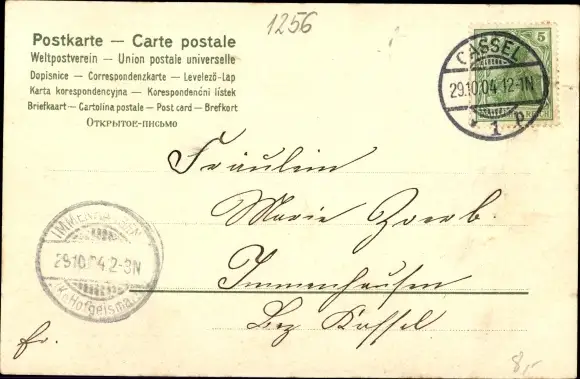 1256
Postkarte — Carte postale
Weltpostverein — Union postale universelle
Dopisnice — Correspondenzkarte — Levelező-Lap
Karta korespondencyjna — Korespondenční lístek
Briefkaart — Cartolina postale — Post card — Brefkort
Открытое-письмо
5
CASSEL
29.10.04.12-1N
1 p.
Fräulein
Marie Zoerb.
Immenhausen
Bez Kassel
IMMENHAUSEN
29.10.04 2-3N
Hofgeismar
fr.
8,-